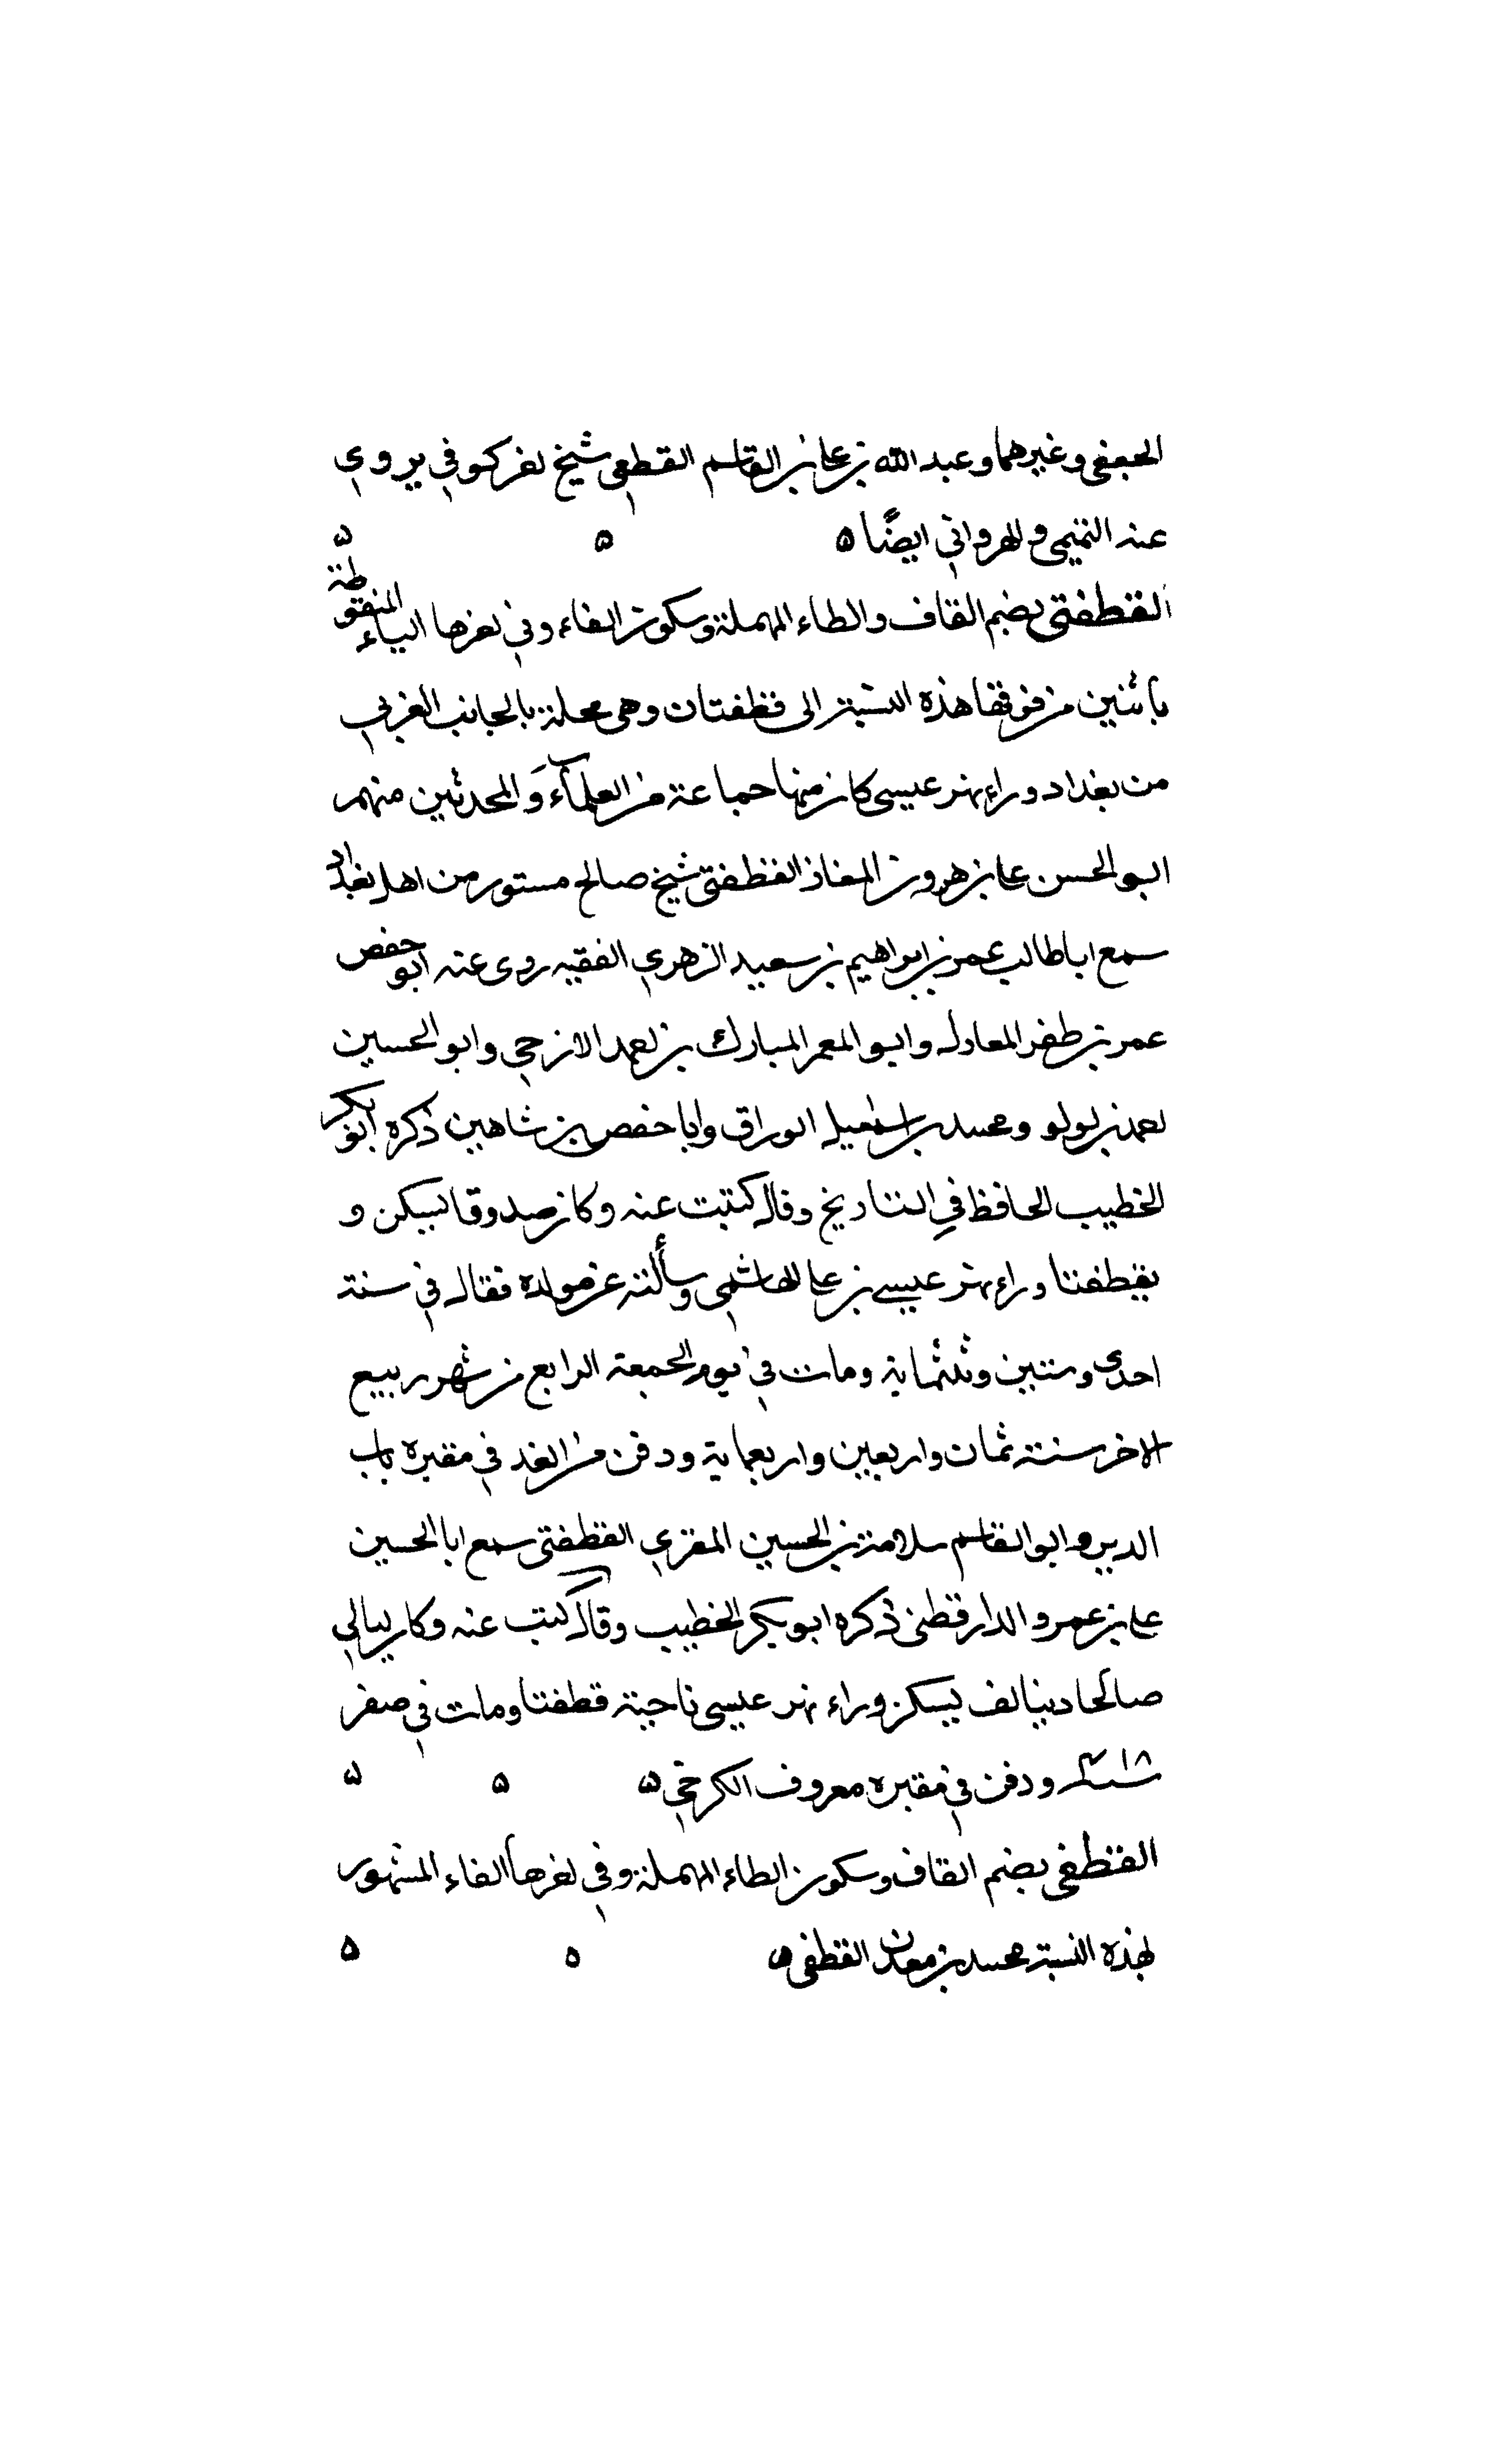 الجعفي وغيرهما وعبد الله بن علي بن القاسم القطعي شيخ اخر كوفي يروي
عنه التميمي والهرواني ايضًا ه ه ه
القطفتي بضم القاف والطاء المهملة وسكون الفاء وفي اخرها التاء المنقوطة
باثنين من فوقها هذه النسبة الى قطفتان وهي محلة بالجانب الغربي
من بغداد وراء نهر عيسى كان منها جماعة من العلمآء وَالمحدثين منهم
ابو الحسن علي بن هرون المغازلي القطفتي شيخ صالح مستور من اهل بغداد
سمع ابا طالب عمر بن ابراهيم بن سعيد الزهري الفقيه روى عنه ابو حفص
عمر بن ظفر المغازلي وابو المعمر المبارك بن احمد الازجي وابو الحسين
احمد بن لولو ومحمد بن اسمعيل الوراق وابا حفص بن شاهين ذكره ابو بكر
الخطيب الحافظ في التاريخ وقال كتبت عنه وكان صدوقا يسكن و
بقطفتا وراء نهر عيسى بن علي الهاشمي وسألته عن مولده فقال في سنة
احدى وستين وثلثماية ومات في يوم الجمعة الرابع من شهر ربيع
الاخر سنة ثمان واربعين واربعماية ودفن من الغد في مقبرة باب
الدير وابو القاسم سلامة بن الحسين المقري القطفتي سمع ابا الحسين
علي بن عمرو الدارقطني ذكره ابو بكر الخطيب وقال كتبت عنه وكان
صالحا دينا يسكن وراء نهر عيسى ناحية قطفتا ومات في صفر
ودفن في مقبرة معروف الكرخي ه ه ه
القطفي بضم القاف وسكون الطاء المهملة وفي اخرها الفاء المشهور
بهذه النسبة محمد بن معدان القطفي ه ه ه